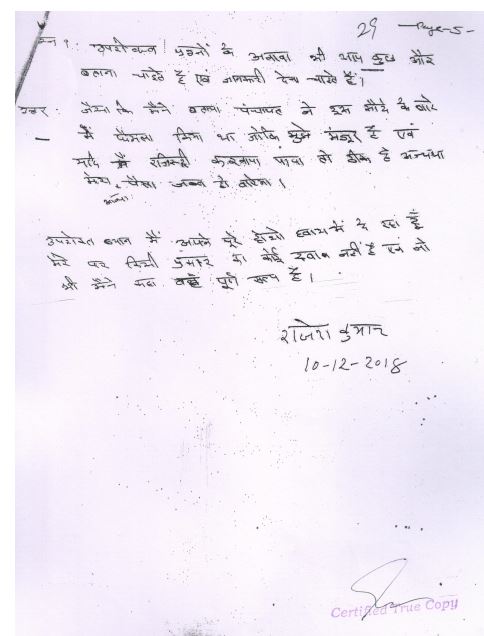 29 Page-5-
प्रश्न ? उपरोक्त प्रश्नों के अलावा भी आप कुछ और
बताना चाहते हैं एवं जानकारी देना चाहते हैं।
उत्तर : जैसा कि मैंने बताया पंचायत ने इस सौदे के बारे
में फैसला किया था जोकि मुझे मंजूर है एवं
यदि रजिस्ट्री करवाया पाया तो ठीक है अन्यथा
मेरा पैसा जब्त हो जायेगा।
उपरोक्त बयान मैं अपने पूरे होशो हवास में दे रहा हूँ
मेरे पर किसी प्रकार का कोई दबाव नहीं है एवं जो
भी मैंने कहा वह पूर्ण सत्य है।
राजेश कुमार
10-12-2018
Certified True Copy